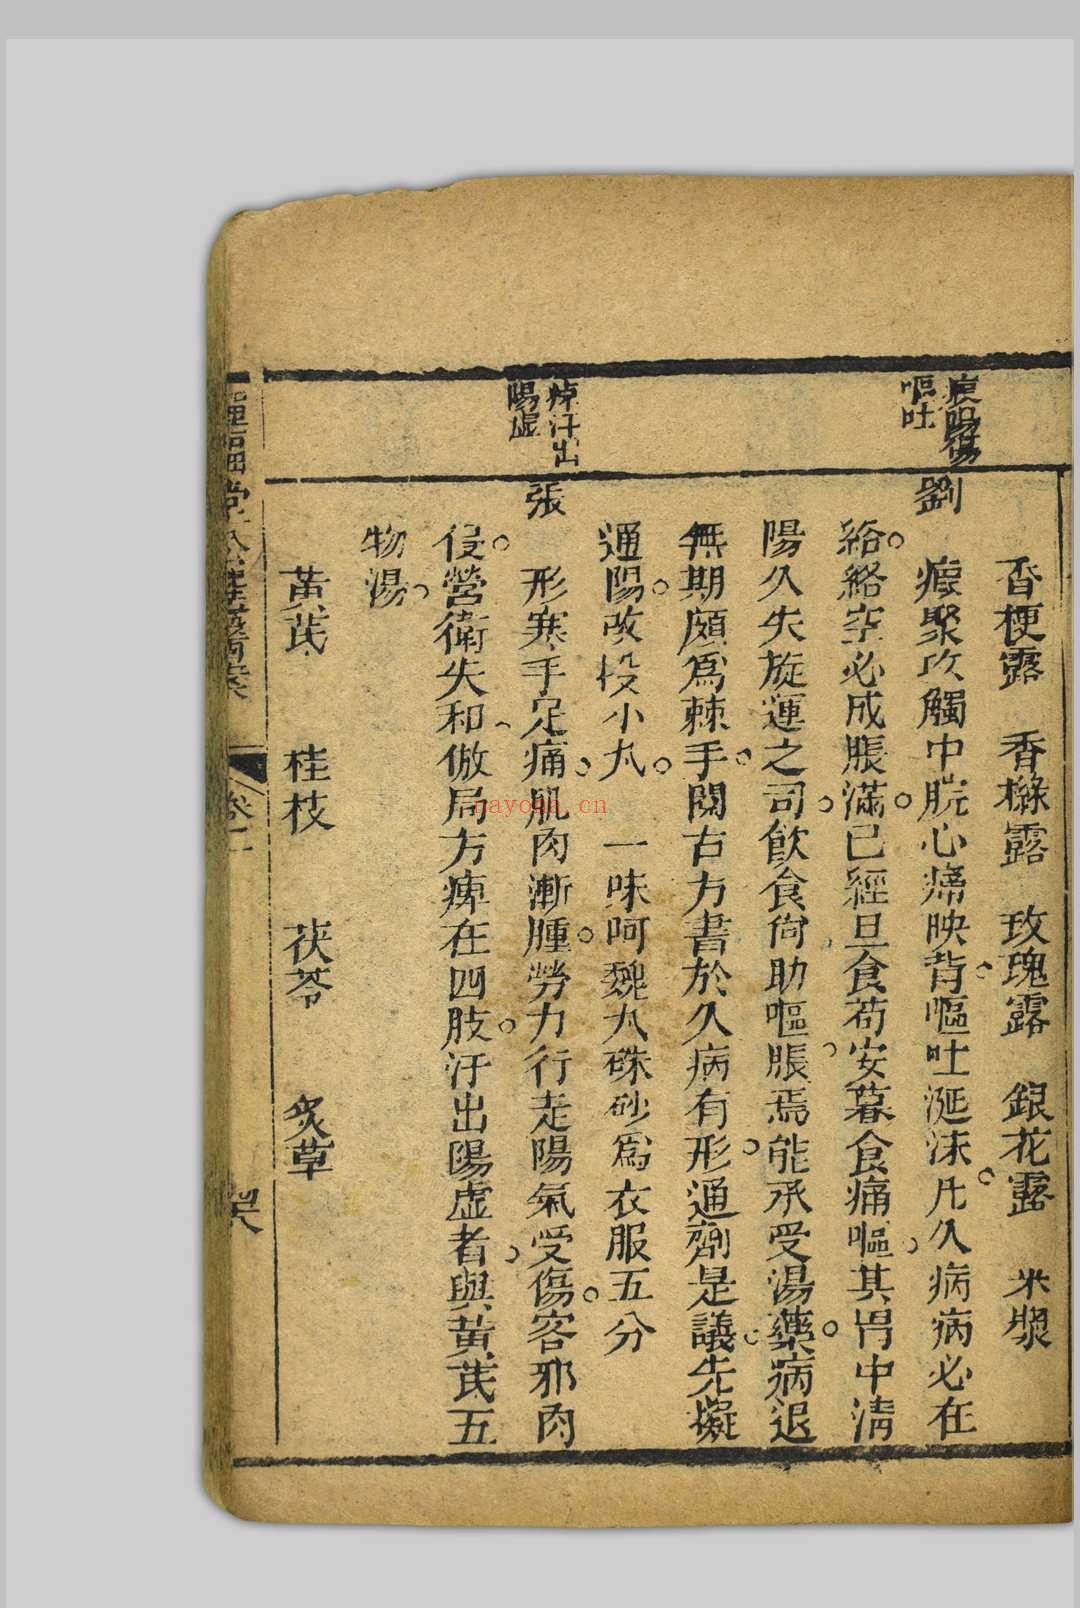 香梗露　香櫞露　玫瑰露　銀花露　米漿
嘔吐
劉
瘕聚攻觸中脘心痛映背嘔吐涎沫凡久病病必在
絡絡空必成脹滿已經旦食苟安暮食痛嘔其胃中清
陽久失旋運之司飲食尙助嘔脹焉能承受湯藥病退
無期頗爲棘手閱古方書於久病有形通劑是議先擬
通陽改投小丸　一味阿魏丸硃砂爲衣服五分
痺汗出
陽虛
張
形寒手足痛肌肉漸腫勞力行走陽氣受傷客邪肉
侵營衛失和倣局方痺在四肢汗出陽虛者與黃芪五
物湯
黃芪　桂枝　茯苓　炙草
種福堂公選醫案
nayona.cn